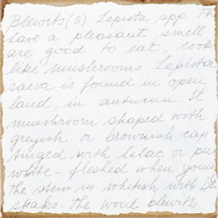 Blewits(s) Lepista spp.
have a pleasant smell
are good to eat, cook
like mushrooms. Lepista
saeva is found in open
land, in autumn. It
mushroom shaped with
greyish or brownish cap
tinged with lilac or
white-fleshed when young
the stem is whitish with
streaks. The wood blewits